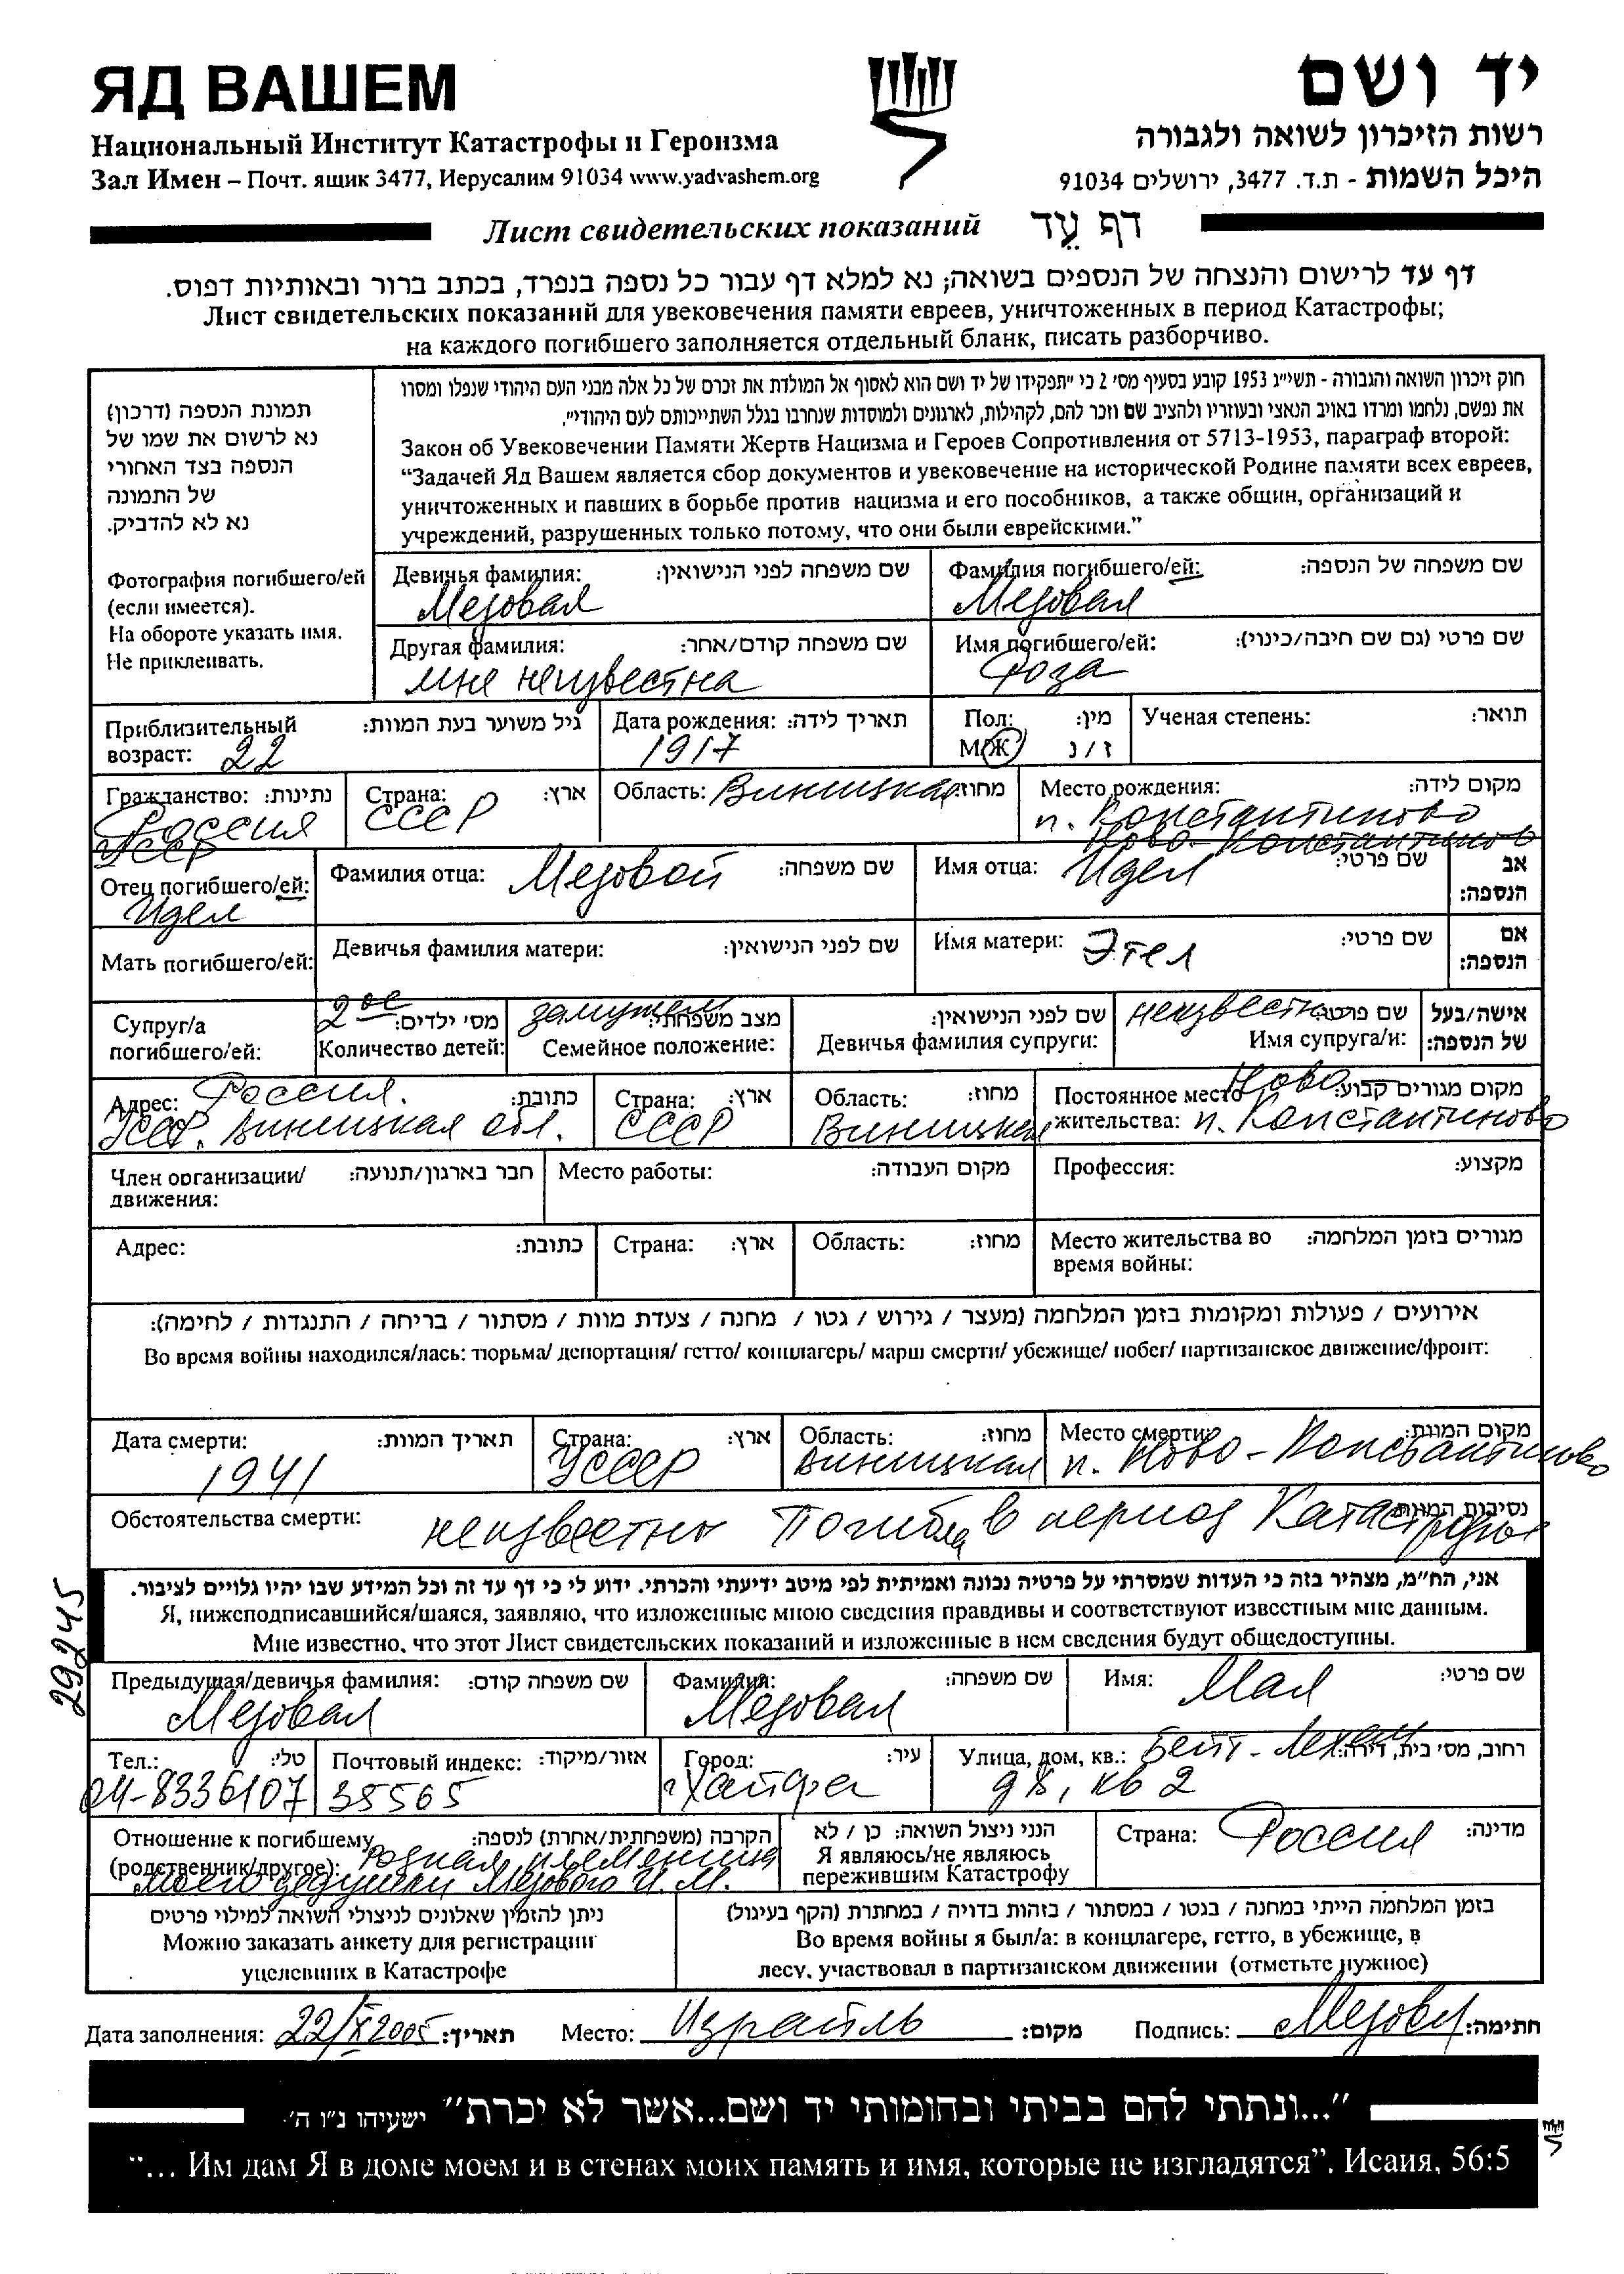 ЯД ВАШЕМ
יד ושם
Национальный Институт Катастрофы и Героизма
רשות הזיכרון לשואה ולגבורה
Зал Имен – Почт. ящик 3477, Иерусалим 91034 www.yadvashem.org
היכל השמות - ת.ד. 3477, ירושלים 91034
Лист свидетельских показаний דף עֵד
דף עד לרישום והנצחה של הנספים בשואה; נא למלא דף עבור כל נספה בנפרד, בכתב ברור ובאותיות דפוס.
Лист свидетельских показаний для увековечения памяти евреев, уничтоженных в период Катастрофы;
на каждого погибшего заполняется отдельный бланк, писать разборчиво.
תמונת הנספה (דרכון)
נא לרשום את שמו של
הנספה בצד האחורי
של התמונה
נא לא להדביק.
Фотография погибшего/ей
(если имеется).
На обороте указать имя.
Не приклеивать.
חוק זיכרון השואה והגבורה - תשי"ג 1953 קובע בסעיף מס' 2 כי "תפקידו של יד ושם הוא לאסוף אל המולדת את זכרם של כל אלה מבני העם היהודי שנפלו ומסרו
את נפשם, נלחמו ומרדו באויב הנאצי ובעוזריו ולהציב שם וזכר להם, לקהילות, לארגונים ולמוסדות שנחרבו בגלל השתייכותם לעם היהודי".
Закон об Увековечении Памяти Жертв Нацизма и Героев Сопротивления от 5713-1953, параграф второй:
“Задачей Яд Вашем является сбор документов и увековечение на исторической Родине памяти всех евреев,
уничтоженных и павших в борьбе против нацизма и его пособников, а также общин, организаций и
учреждений, разрушенных только потому, что они были еврейскими.”
Девичья фамилия: שם משפחה לפני הנישואין:
Мезовая
Фамилия погибшего/ей: שם משפחה של הנספה:
Мезовая
Другая фамилия: שם משפחה קודם/אחר:
мне неизвестна
Имя погибшего/ей: שם פרטי (גם שם חיבה/כינוי):
Роза
Приблизительный גיל משוער בעת המוות:
возраст: 22
Дата рождения: תאריך לידה:
1917
Пол: מין:
М/Ж ז / נ
Ученая степень: תואר:
Гражданство: נתינות:
Россия
УССР
Страна: ארץ:
СССР
Область: Виницкая מחוז:
Место рождения: מקום לידה:
п. Константиново
Ново-Константинов
Отец погибшего/ей:
Идел
Фамилия отца: Мезовой שם משפחה:
Имя отца: Идел שם פרטי:
אב
הנספה:
Мать погибшего/ей:
Девичья фамилия матери: שם לפני הנישואין:
Имя матери: Этел שם פרטי:
אם
הנספה:
Супруг/а
погибшего/ей:
2ое מס' ילדים:
Количество детей:
замужем מצב משפחתי:
Семейное положение:
שם לפני הנישואין:
Девичья фамилия супруги:
неизвестно שם פרטי:
Имя супруга/и:
אישה/בעל
של הנספה:
Адрес: Россия. כתובת:
УССР. Виницкая обл.
Страна: ארץ:
СССР
Область: מחוז:
Виницкая
Постоянное место Ново- מקום מגורים קבוע:
жительства: п. Константиново
Член организации/ חבר בארגון/תנועה:
движения:
Место работы: מקום העבודה:
Профессия: מקצוע:
Адрес: כתובת:
Страна: ארץ:
Область: מחוז:
Место жительства во מגורים בזמן המלחמה:
время войны:
אירועים / פעולות ומקומות בזמן המלחמה (מעצר / גירוש / גטו / מחנה / צעדת מוות / מסתור / בריחה / התנגדות / לחימה):
Во время войны находился/лась: тюрьма/ депортация/ гетто/ концлагерь/ марш смерти/ убежище/ побег/ партизанское движение/фронт:
Дата смерти: תאריך המוות:
1941
Страна: ארץ:
УСССР
Область: מחוז:
Виницкая
Место смерти: מקום המוות:
п. Ново-Константиново
Обстоятельства смерти: נסיבות המוות:
неизвестны Погибла в период Катастрофы
אני, הח"מ, מצהיר בזה כי העדות שמסרתי על פרטיה נכונה ואמיתית לפי מיטב ידיעתי והכרתי. ידוע לי כי דף עד זה וכל המידע שבו יהיו גלויים לציבור.
Я, нижеподписавшийся/шаяся, заявляю, что изложенные мною сведения правдивы и соответствуют известным мне данным.
Мне известно, что этот Лист свидетельских показаний и изложенные в нем сведения будут общедоступны.
29245
Предыдущая/девичья фамилия: שם משפחה קודם:
Мезовая
Фамилия: שם משפחה:
Мезовая
Имя: Мая שם פרטי:
Тел.: טלי:
04-8336107
Почтовый индекс: אזור/מיקוד:
35565
Город: עיר:
г Хайфа
Улица, дом, кв.: Бейт-Лехем רחוב, מס' בית, דירה:
д 8, кв 2
Отношение к погибшему הקרבה (משפחתית/אחרת) לנספה:
(родственник/другое): родная племенница
моего дедушки Мезового И.М.
הנני ניצול השואה: כן / לא
Я являюсь/не являюсь
пережившим Катастрофу
Страна: Россия מדינה:
ניתן להזמין שאלונים לניצולי השואה למילוי פרטים
Можно заказать анкету для регистрации
уцелевших в Катастрофе
בזמן המלחמה הייתי במחנה / בגטו / במסתור / בזהות בדויה / במחתרת (הקף בעיגול)
Во время войны я был/а: в концлагере, гетто, в убежище, в
лесу, участвовал в партизанском движении (отметьте нужное)
Дата заполнения: 22/X 2005 תאריך: Место: Израиль מקום: Подпись: חתימה:
"...ונתתי להם בביתי ובחומותי יד ושם...אשר לא יכרת" ישעיהו נ"ו ה'
“... Им дам Я в доме моем и в стенах моих память и имя, которые не изгладятся”. Исаия, 56:5